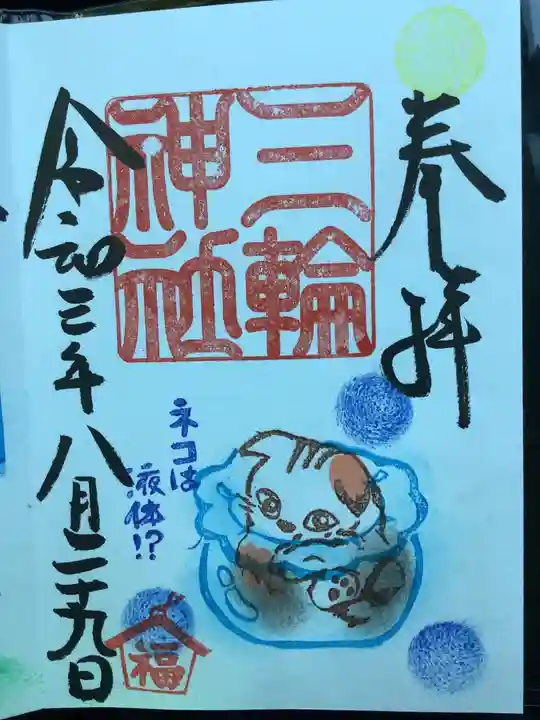 奉拝
三輪
神社
ネコは
液体!?
令和三年八月二十九日
福